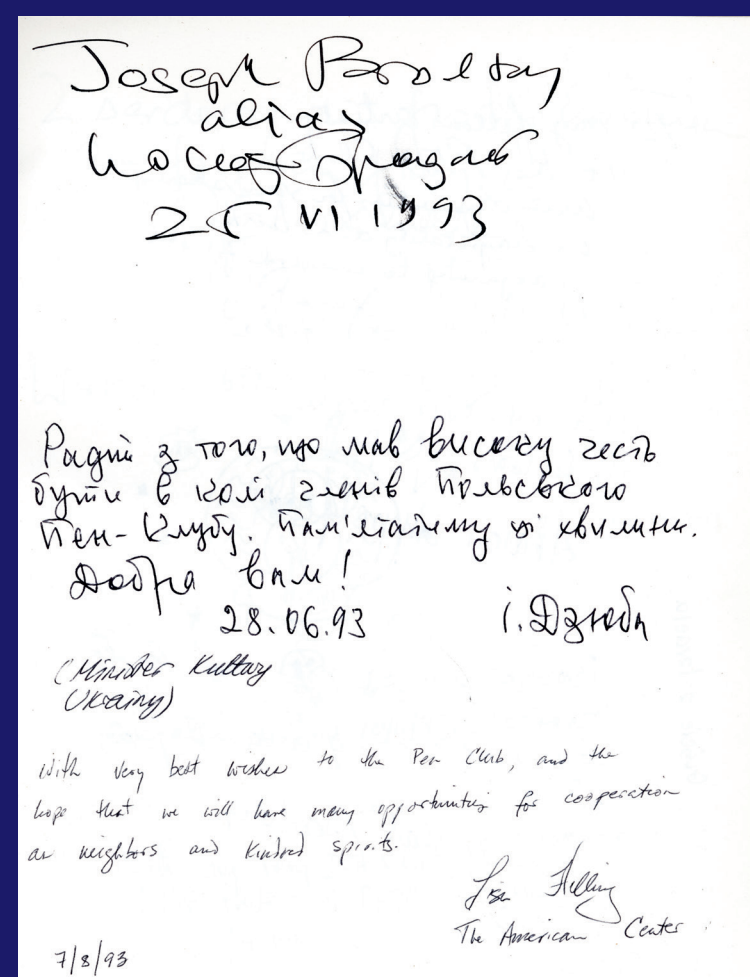 Joseph Brodsky
alias
Иосиф Бродский
25 VI 1993
Радий з того, що мав високу честь
бути в колі членів Польського
Пен-Клубу. Пам'ятатиму ці хвилини.
Добра вам!
28.06.93 І. Дзюба
(Minister Kultury
Ukrainy)
With very best wishes to the Pen Club, and the
hope that we will have many opportunities for cooperation
as neighbors and kindred spirits.
Lisa
The American Center
7/8/93